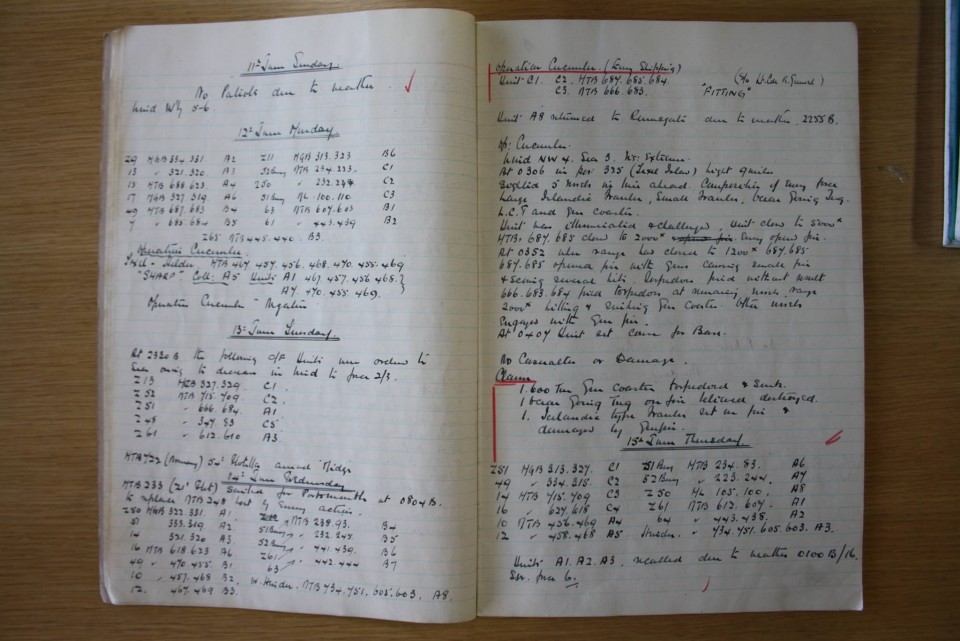 11th June Sunday.
No Patrols due to weather.
Wind Wly 5-6
12th June Monday.
Z9 MGB 334.331 A2 Z11 MGB 313.323 B6
13 " 321.320 A3 52 Bury MTB 234.223. C1
15 MTB 688 623 A4 Z50 " 232.244 C2
17 MGB 327.319 A6 51 Bury ML. 100.110 C3
49 MTB 687.683 B4 63 MTB 607.603 B1
7 " 685.684 B5 61 " 443.439 B2
Z65 MTB 445.440 B3
Operation Cucumber.
MTB 467 457. 456. 468. 470. 455. 469
"SHARP" Coll: A5 Units A1 467. 457. 456 468. }
A7. 470. 455 469. }
Operation Cucumber Negative
13th June Tuesday.
At 2320 B the following C/F Units were ordered to
Sea owing to decrease in wind to force 2/3.
Z 13 MGB 327.329 C1
Z 52 MTB 715.709 C2
Z51 " 666 684. A1
Z48 " 347. 83 C5
Z61 " 612. 610 A3.
MTB 722 54th Flotilla arrived
14th June Wednesday
MTB 233 (21st Flot) sailed for Portsmouth at 0804 B.
to replace MTB 248 lost by Enemy action.
Z50 MGB 322.331. A1 MTB 238.93. B4
51 333.319 A2 51 Bury " 232.245 B5
14 321.320 A3 52 Bury " 441.439. B6
16 MTB 618 623 A6 Z61 " 442.444 B7
49 " 470.455 B1 63
10 " 457.468 B2. MTB 734.751. 605.603. A8.
12. 467.469 B3.
Operation Cucumber. (Enemy Shipping)
Unit C1. C2. MTB 687. 685. 684.
C3. MTB 666. 683. "FITTING"
Unit A8 returned to Ramsgate due to weather, 2255 B.
Op: Cucumber.
Wind NW 4. Sea 3. Vis: Extreme.
At 0306 in pos 325 (Texel Island) Light 9 miles
Sighted 5 vessels in line ahead. Composition of Enemy force
Large Islandic Trawler, Small Trawler, Ocean Going Tug.
L.C.T and Gun coaster.
Unit was illuminated & challenged, Unit close to 5000x
MTBs. 687. 685 close to 2000x Enemy opened fire.
At 0352 when range has closed to 1200x 687.685
687.685 opened fire with guns causing small fire
& scoring several hits. Torpedoes fired without result
666.683.684 fired torpedoes at remaining vessels range
2000x hitting & sinking Gun Coaster. Other vessels
Engaged with Gun fire.
At 0407 Unit set course for Base.
No Casualties or Damage.
Claim
1. 600 Ton Gun coaster torpedoed & sunk.
1 Ocean Going Tug on fire believed destroyed.
1. Icelandic type Trawler set on fire &
damaged by Gunfire.
15th June Thursday.
Z51 MGB 313.327. C1 Z51 Bury MTB 234. 83. A6
49 " 334.315. C2 52 Bury " 223.244. A7
14 MTB 715.709 C3 Z50 ML 105.100. A8
16 " 624.618 C4 Z61 MTB 612.607. A1
10 MTB 456.469 A4 64 " 443.438. A2
12 " 458.468 A5 " 734.751. 605.603. A3.
Units A1. A2. A3. recalled due to weather 0100 B/16.
Sea force 6.